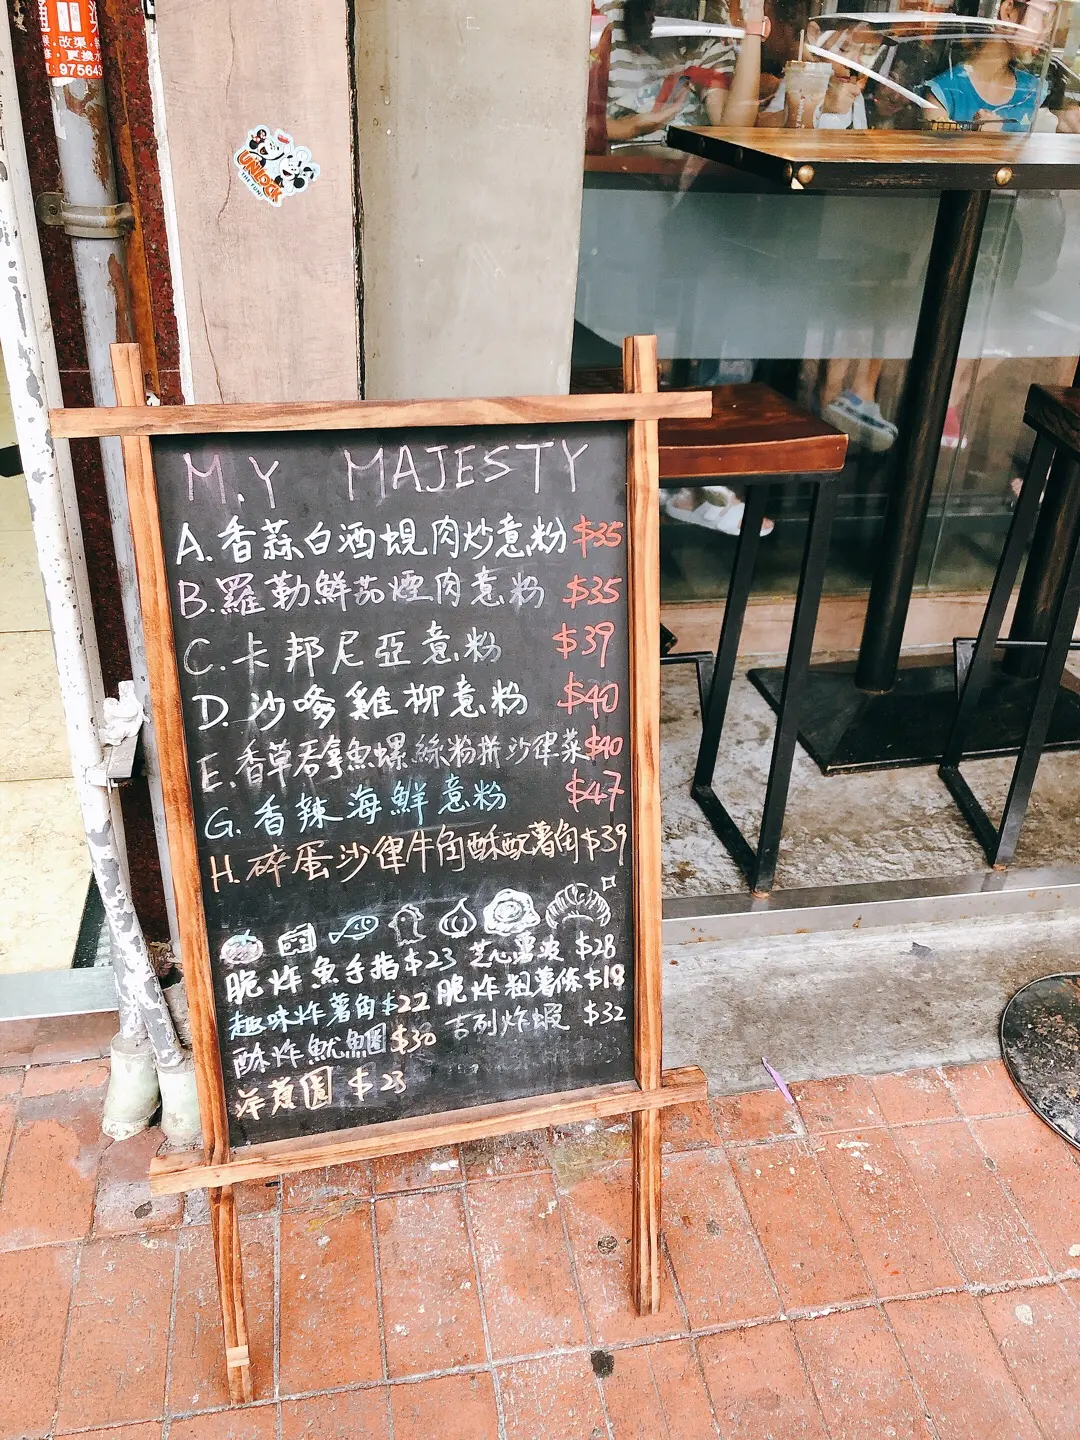 通
渠
改渠
更換水
975643
UNLOCK
THE FUN!
M.Y MAJESTY
A.香蒜白酒蜆肉炒意粉 $35
B.羅勒鮮茄煙肉意粉 $35
C.卡邦尼亞意粉 $39
D.沙嗲雞柳意粉 $40
E.香草吞拿魚螺絲粉拼沙律菜 $40
G.香辣海鮮意粉 $47
H.碎蛋沙律牛角酥配薯角 $39
脆炸魚手指 $23 芝心薯波 $28
趣味炸薯角 $22 脆炸粗薯條 $18
酥炸魷魚圈 $30 吉列炸蝦 $32
洋葱圈 $23